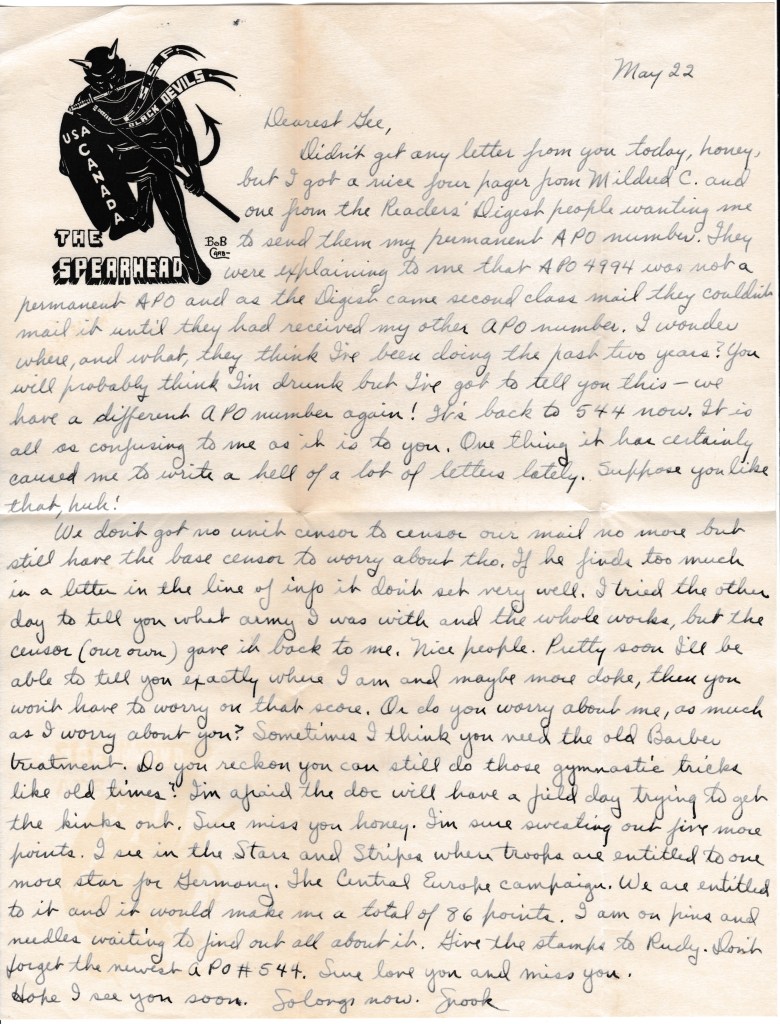 May 22
F.S.S.F.
BLACK DEVILS
USA
CANADA
THE
SPEARHEAD
BoB
Dearest Gee,
Didn't get any letter from you today, honey,
but I got a nice four pager from Mildred C. and
one from the Readers' Digest people wanting me
to send them my permanent APO number. They
were explaining to me that APO 4994 was not a
permanent APO and as the Digest came second class mail they couldn't
mail it until they had received my other APO number. I wonder
where, and what, they think I've been doing the past two years? You
will probably think I'm drunk but I've got to tell you this – we
have a different APO number again! It's back to 544 now. It is
all as confusing to me as it is to you. One thing it has certainly
caused me to write a hell of a lot of letters lately. Suppose you like
that, huh!
We don't got no unit censor to censor our mail no more but
still have the base censor to worry about tho. If he finds too much
in a letter in the line of info it don't set very well. I tried the other
day to tell you what army I was with and the whole works, but the
censor (our own) gave it back to me. Nice people. Pretty soon I'll be
able to tell you exactly where I am and maybe more doke, then you
won't have to worry on that score. Or do you worry about me, as much
as I worry about you? Sometimes I think you need the old Barber
treatment. Do you reckon you can still do those gymnastic tricks
like old times? I'm afraid the doc will have a field day trying to get
the kinks out. Sure miss you honey. I'm sure sweating out five more
points. I see in the Stars and Stripes where troops are entitled to one
more star for Germany. The Central Europe campaign. We are entitled
to it and it would make me a total of 86 points. I am on pins and
needles waiting to find out all about it. Give the stamps to Rudy. Don't
forget the newest APO # 544. Sure love you and miss you.
Hope I see you soon. So longs now. Snook